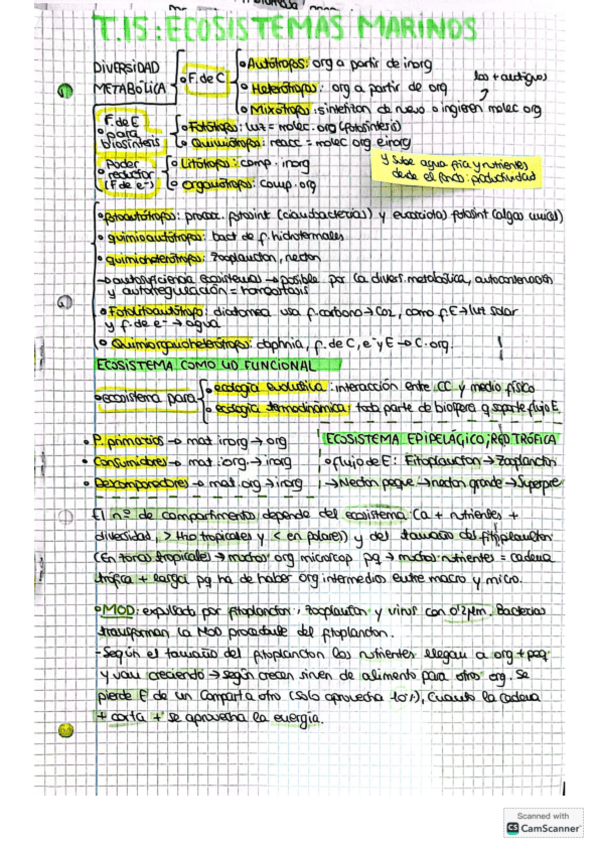 T.15: ECOSISTEMAS MARINOS
DIVERSIDAD METABÓLICA
F. de C
Autótrofos: org a partir de inorg
Heterótrofos: org a partir de org
los + antiguos
Mixótrofos: sintetitan de nuevo o ingieren molec org
F. de E para biosíntesis
Fotótrofos: luz = molec. org (fotosíntesis)
Quimiótrofos: reacc = molec org e inorg
Poder reductor (F de e-)
Litótrofos: comp. inorg
Organótrofos: comp. org
y sube agua fría y nutrientes
desde el fondo: productividad
fotoautótrofos: procar. fotosint (cianobacterias) y eucariotas fotosint (algas unicel)
quimioautótrofos: bact de f. hidrotermales
quimioheterótrofos: zooplancton, necton
→ autosuficiencia ecosistemas → posible por la divers. metabólica, autocontención
y autorregulación = homeostasis
Fotolitoautótrofo: diatomea usa f. carbono → CO2, como f. E → luz solar
y f. de e- → agua
Quimiorganoheterótrofos: daphnia, f. de C, e- y E → C. org.
ECOSISTEMA COMO UD FUNCIONAL
ecosistema para
ecología evolutiva: interacción entre CC y medio físico
ecología termodinámica: toda parte de biosfera q soporte flujo E
P. primarios → mat inorg → org
Consumidores → mat. org. → inorg
Descomponedores → mat. org → inorg
ECOSISTEMA EPIPELÁGICO; RED TRÓFICA
flujo de E: Fitoplancton → Zooplancton
→ Necton peque → necton grande → Superpre
El nº de compartimentos depende del ecosistema: Ca + nutrientes +
diversidad, > tho tropicales y < en polares) y del tamaño del fitoplancton
(En zonas tropicales → muchos org microscop pq → muchos nutrientes = cadena
trófica + larga) pq ha de haber org intermedios entre macro y micro.
MOD: expulsado por fitoplancton, zooplancton y virus con 0'2 µm. Bacterias
transforman la MOD procedente del fitoplancton.
- Según el tamaño del fitoplancton los nutrientes llegan a org + peq
y van creciendo → según crecen sirven de alimento para otros org. Se
pierde E de un comparta otro (solo aprovecha 10%), cuando la cadena
+ corta + se aprovecha la energía.
1
Scanned with
CS CamScanner